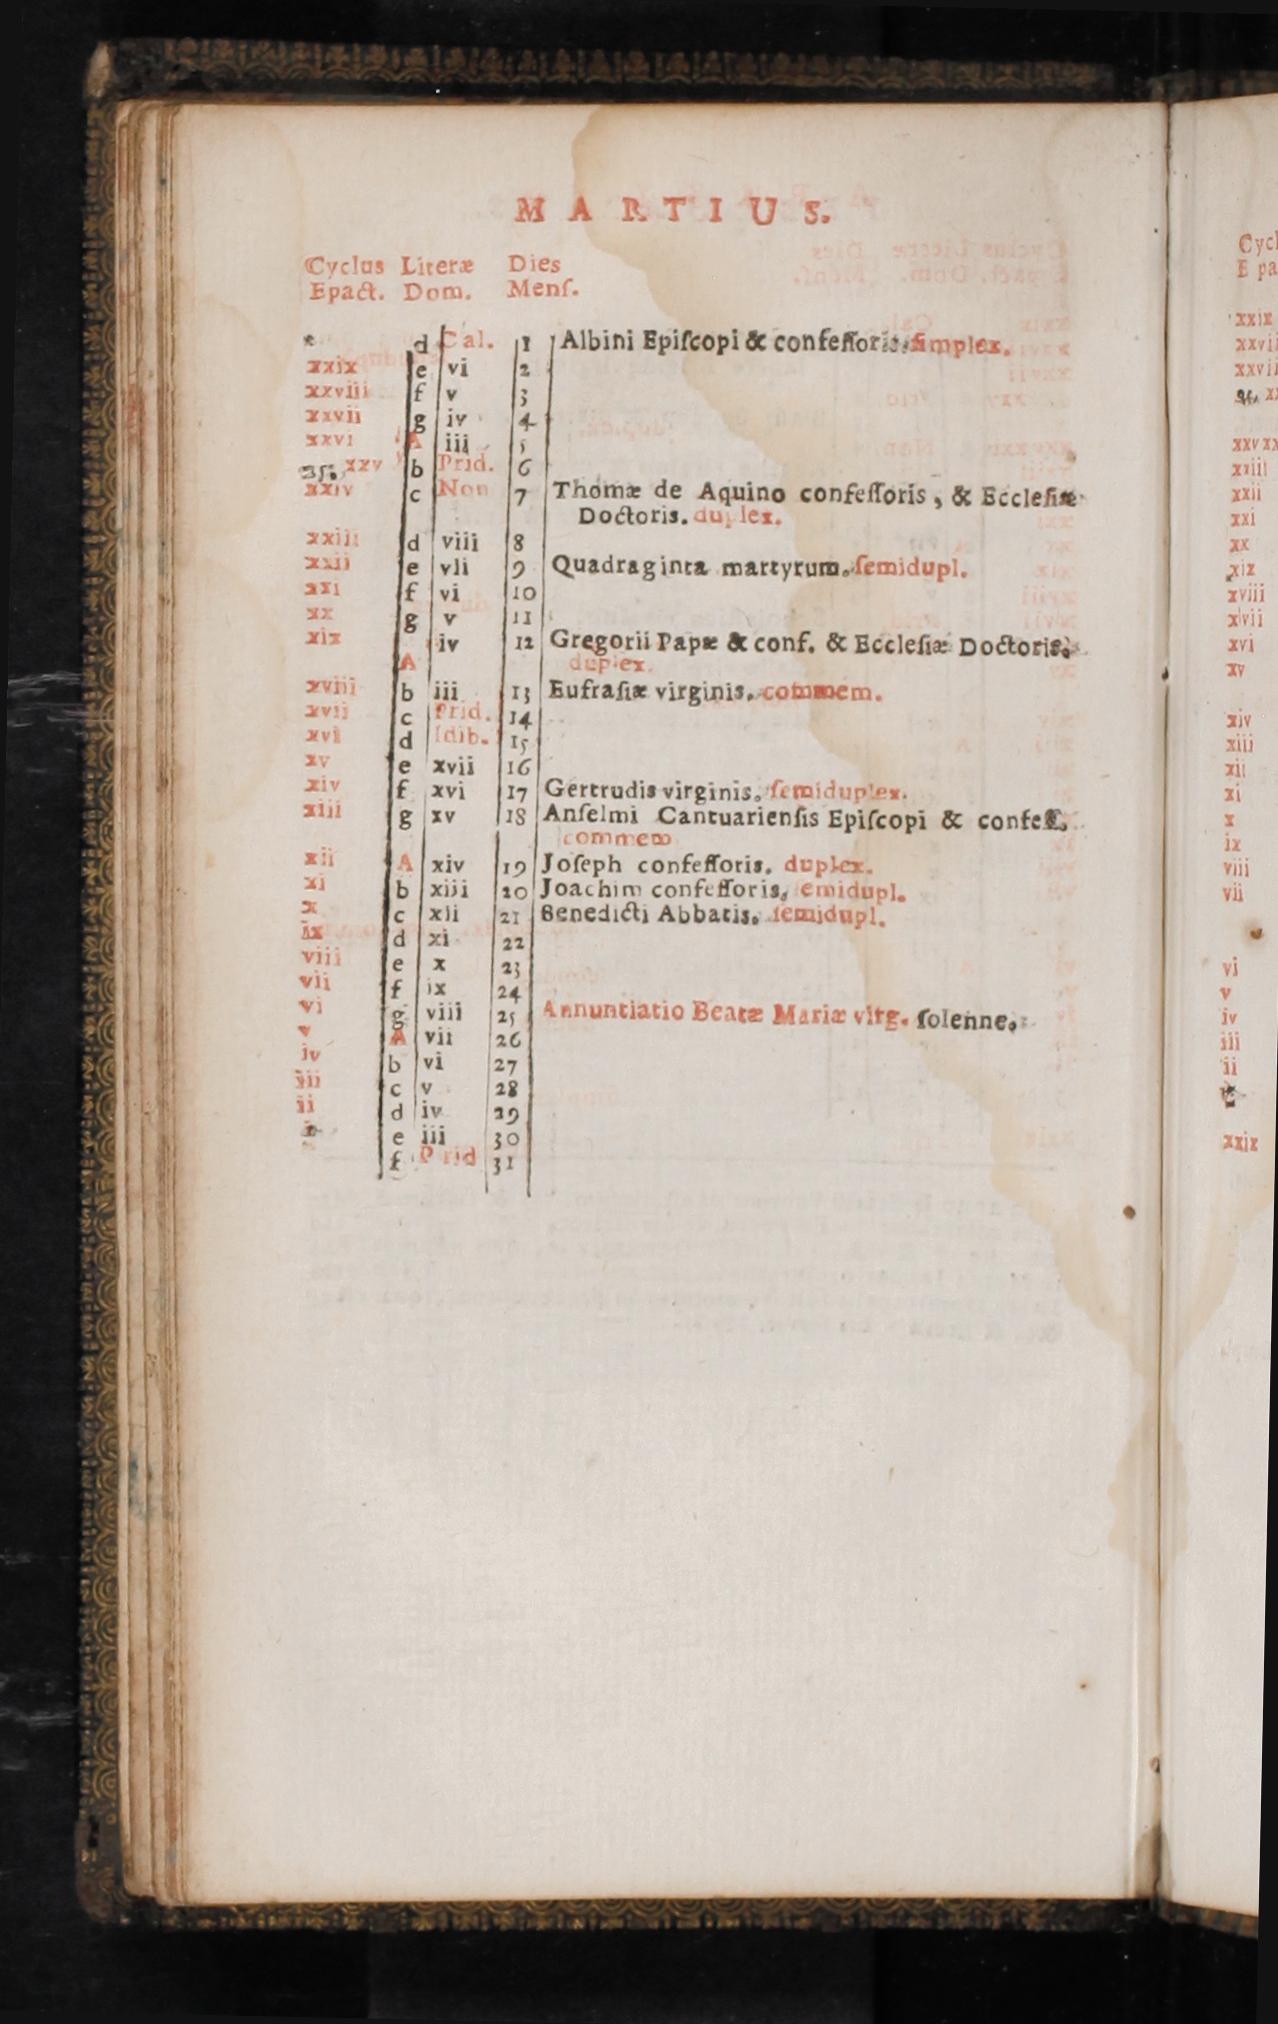 MARTIUS.
Cyclus Literæ Dies
Epact. Dom. Menſ.
* d Cal. 1 Albini Epiſcopi & confeſſoris. ſimplex.
xxix e vi 2
xxviii f v 3
xxvii g iv 4
xxvi A iii 5
25. xxv b Prid. 6
xxiv c Non 7 Thomæ de Aquino confeſſoris, & Eccleſiæ
Doctoris. duplex.
xxiii d viii 8
xxii e vii 9 Quadraginta martyrum. ſemidupl.
xxi f vi 10
xx g v 11
xix iv 12 Gregorii Papæ & conf. & Eccleſiæ Doctoris.
A duplex.
xviii b iii 13 Eufraſiæ virginis. commem.
xvii c Prid. 14
xvi d Idib. 15
xv e xvii 16
xiv f xvi 17 Gertrudis virginis. ſemiduplex.
xiii g xv 18 Anſelmi Cantuarienſis Epiſcopi & confeſſ.
commem
xii A xiv 19 Joſeph confeſſoris. duplex.
xi b xiii 20 Joachim confeſſoris. emidupl.
x c xii 21 Benedicti Abbatis. ſemidupl.
ix d xi 22
viii e x 23
vii f ix 24
vi g viii 25 Annuntiatio Beatæ Mariæ virg. ſolenne.
v A vii 26
iv b vi 27
iii c v 28
ii d iv 29
e iii 30
f Prid 31
Cycl
E pa
xxix
xxvii
xxvii
xxiii
xxii
xxi
xx
xix
xviii
xvii
xvi
xv
xiv
xiii
xii
xi
x
ix
viii
vii
vi
v
iv
iii
ii
xxix